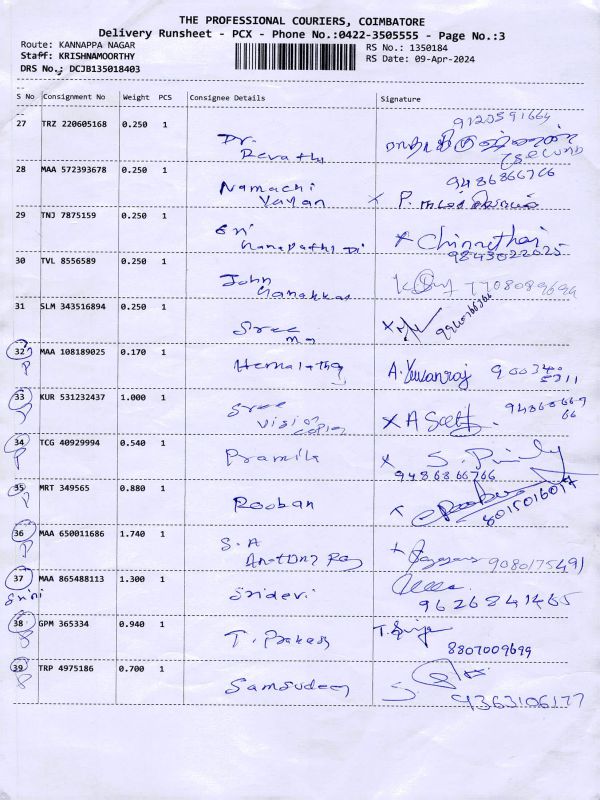 THE PROFESSIONAL COURIERS, COIMBATORE
Delivery Runsheet - PCX - Phone No.:0422-3505555 - Page No.:3
Route: KANNAPPA NAGAR
RS No.: 1350184
Staff: KRISHNAMOORTHY
RS Date: 09-Apr-2024
DRS No.: DCJB135018403
S No Consignment No Weight PCS Consignee Details Signature
27 TRZ 220605168 0.250 1
Dr.
Revathi
9120591664
28 MAA 572393678 0.250 1
Namachi
Vayan
9486866766
29 TNJ 7875159 0.250 1
Sri
Ganapathi
x Chinnathai
9843022025
30 TVL 8556589 0.250 1
John
7708089694
31 SLM 343516894 0.250 1
Sree
32 MAA 108189025 0.170 1
P
Hemalatha
A. Yuvanraj
33 KUR 531232437 1.000 1
Sree
Vision
x A
34 TCG 40929994 0.540 1
P
Pramila
x S.
9486866766
35 MRT 349565 0.880 1
P
Rooban
x
8015016017
36 MAA 650011686 1.740 1
P
S. A
Antony Raj
9080175491
37 MAA 865488113 1.300 1
Srini
Sridevi
9626841465
38 GPM 365334 0.940 1
T. Prakash
8807009699
39 TRP 4975186 0.700 1
Samsudeen
S.
9363106177